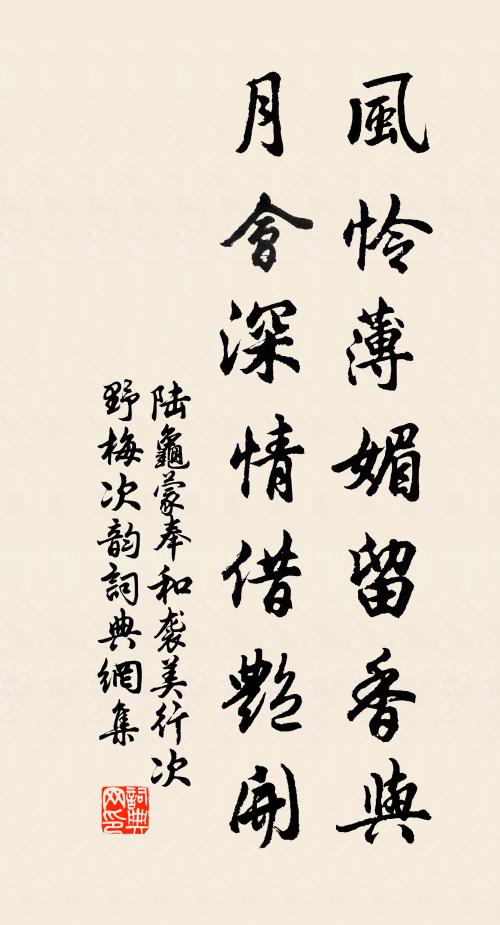 風怜薄媚留香與
月會深情借艷開
陆龜蒙奉和袭美行次
野梅次韵詞典網集
詞典网印